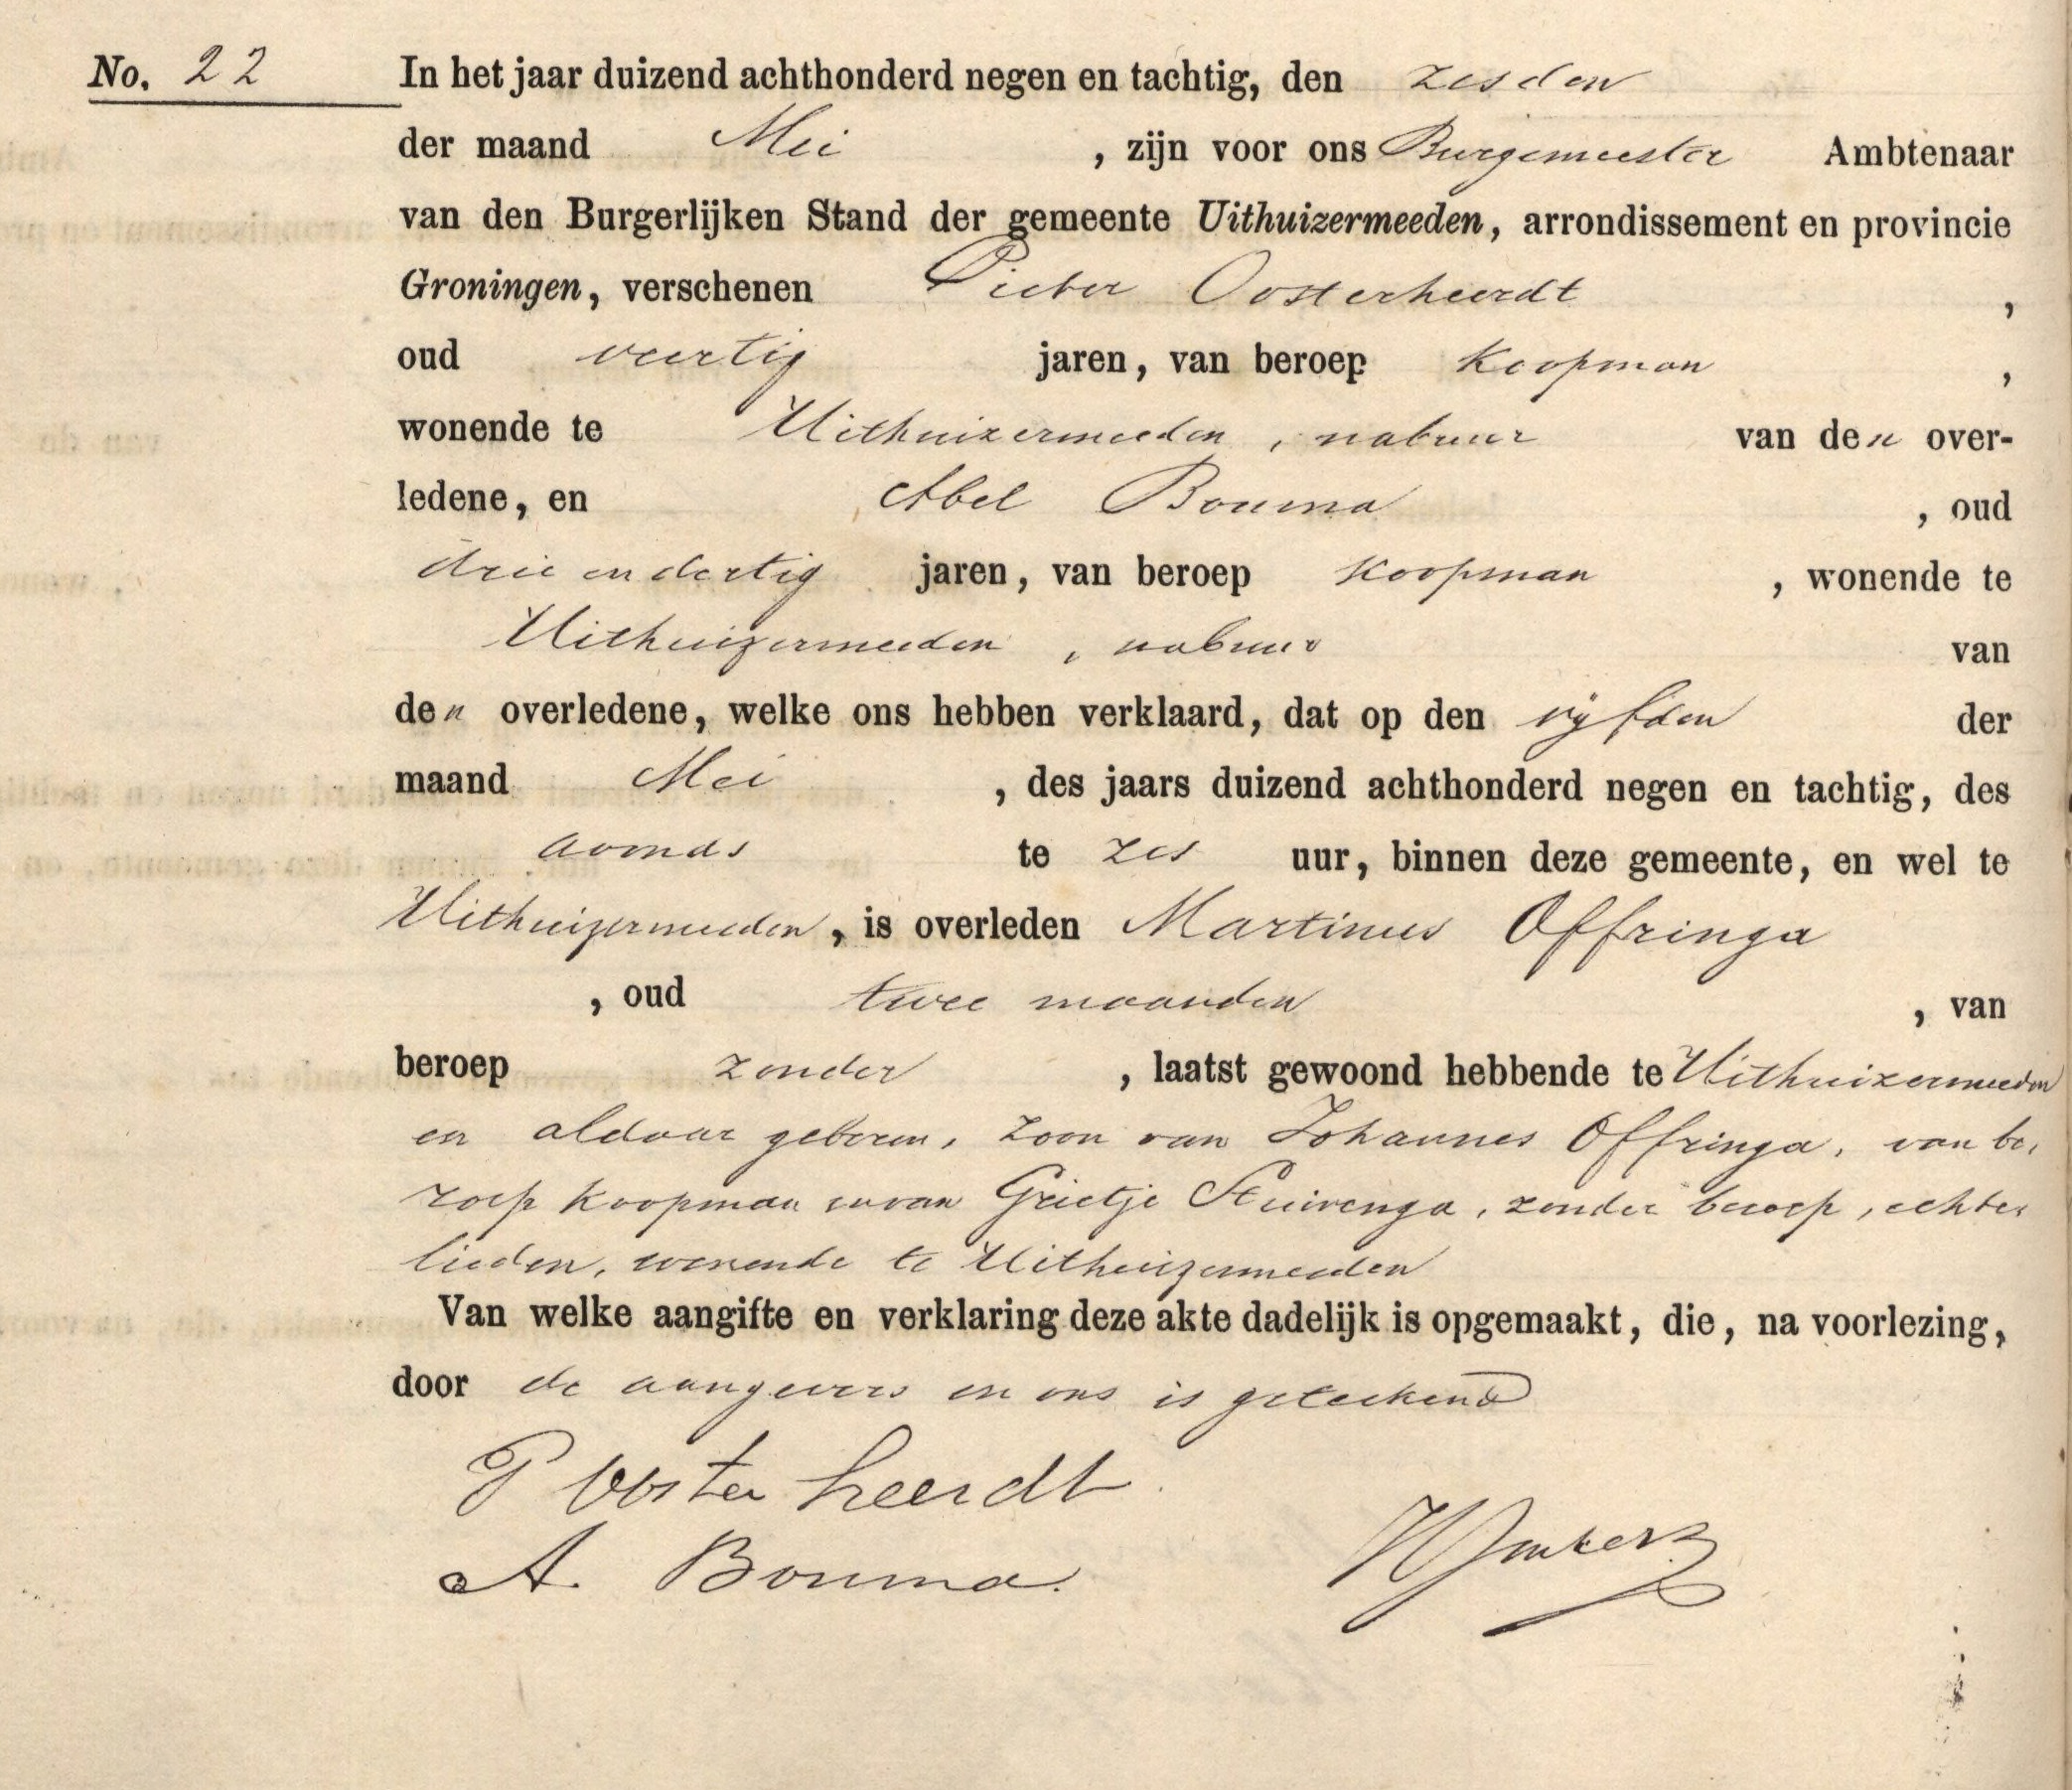 No. 22
In het jaar duizend achthonderd negen en tachtig, den zesden
der maand Mei , zijn voor ons Burgemeester Ambtenaar
van den Burgerlijken Stand der gemeente Uithuizermeeden, arrondissement en provincie
Groningen, verschenen Pieter Oosterheerdt ,
oud veertig jaren, van beroep Koopman ,
wonende te Uithuizermeeden , nabuur van den over-
ledene, en Abel Bouma , oud
drie en dertig jaren, van beroep Koopman , wonende te
Uithuizermeeden , nabuur van
den overledene, welke ons hebben verklaard, dat op den vijfden der
maand Mei , des jaars duizend achthonderd negen en tachtig, des
avonds te zes uur, binnen deze gemeente, en wel te
Uithuizermeeden , is overleden Martinus Offringa
, oud twee maanden , van
beroep zonder , laatst gewoond hebbende te Uithuizermeeden
en aldaar geboren, zoon van Johannes Offringa, van be-
roep Koopman en van Grietje Stuivenga, zonder beroep, echte-
lieden, wonende te Uithuizermeeden
Van welke aangifte en verklaring deze akte dadelijk is opgemaakt, die, na voorlezing,
door de aangevers en ons is geteekend
P Oosterheerdt
A. Bouma.